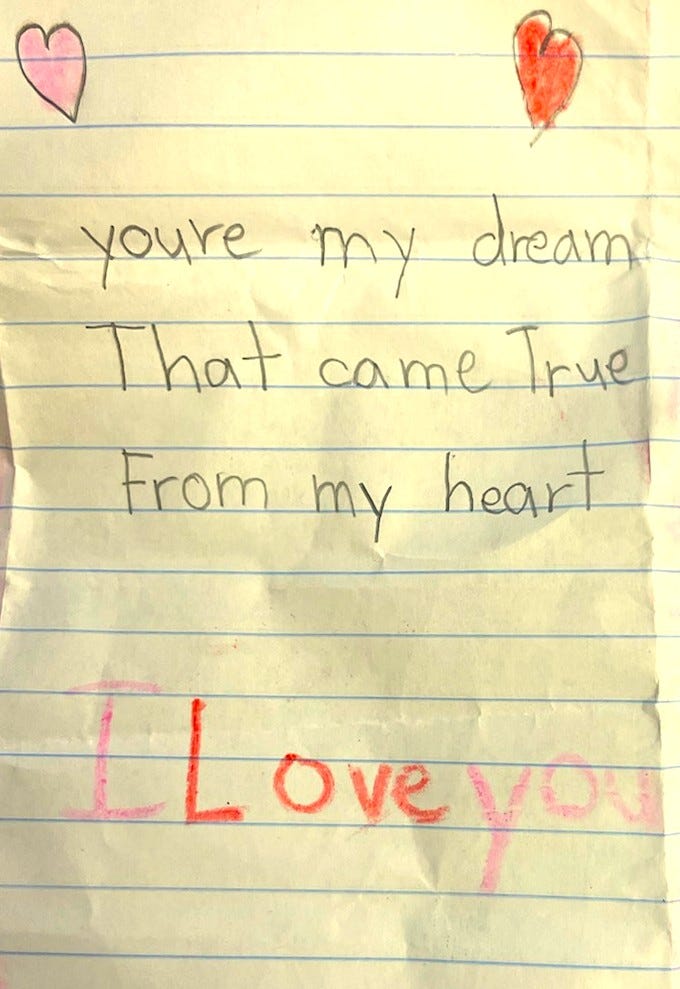 youre my dream
That came True
From my heart
I Love you